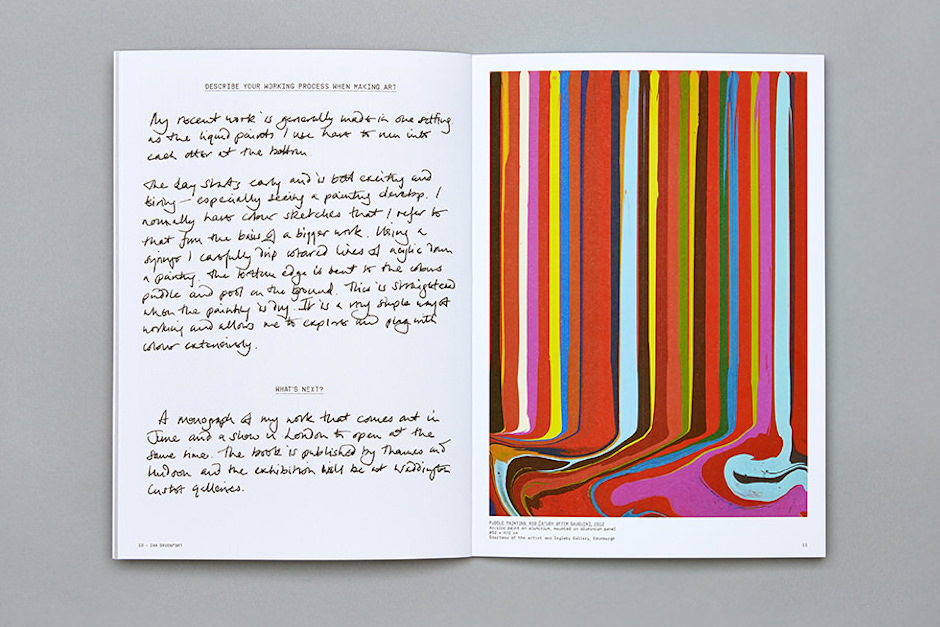 DESCRIBE YOUR WORKING PROCESS WHEN MAKING ART
My recent work is generally made in one setting
as the liquid paints I use have to run into
each other at the bottom.
The day starts early and is both exciting and
tiring – especially seeing a painting develop. I
normally have colour sketches that I refer to
that form the basis of a bigger work. Using a
syringe I carefully drip coloured lines of acrylic down
a painting. The bottom edge is bent so the colours
puddle and pool on the ground. This is straightened
when the painting is dry. It is a very simple way of
working and allows me to explore and play with
colour extensively.
WHAT'S NEXT?
A monograph of my work that comes out in
June and a show in London to open at the
same time. The book is published by Thames and
Hudson and the exhibition will be at Waddington
Custot galleries.
10 – IAN DAVENPORT
PUDDLE PAINTING: RED (STUDY AFTER ), 2012
Acrylic paint on aluminium, mounted on aluminium panel
Courtesy of the artist and Ingleby Gallery, Edinburgh
11